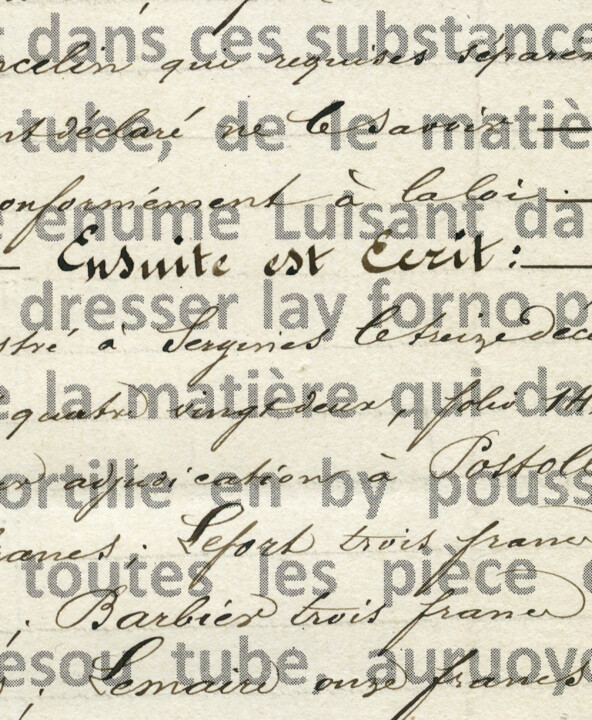 dans ces substance
rcelin qui requises séparém
tube, de le matiè
nt déclaré ne le savoir —
onformément à la loi —
enume Luisant da
— Ensuite est Ecrit: —
dresser lay forno p
stré à Sergines le treize déce
e la matière qui da
quatre vingt deux, folio 14
ortille en by pouss
adjudication à Postolle
francs; Lefort trois franc
toutes les pièce
; Barbier trois franc
esou tube, auruoye
; Lemaire onze francs